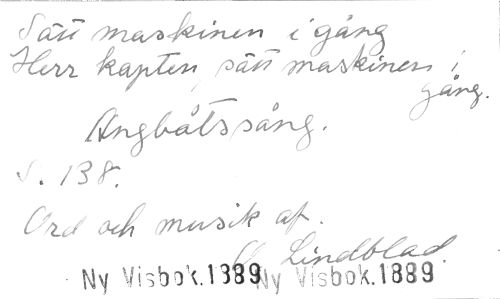 Sätt maskinen i gång
Herr kapten, sätt maskinen i
gång.
Ångbåtssång.
S. 138.
Ord och musik af.
O. Lindblad.
Ny Visbok.1889 Ny Visbok.1889